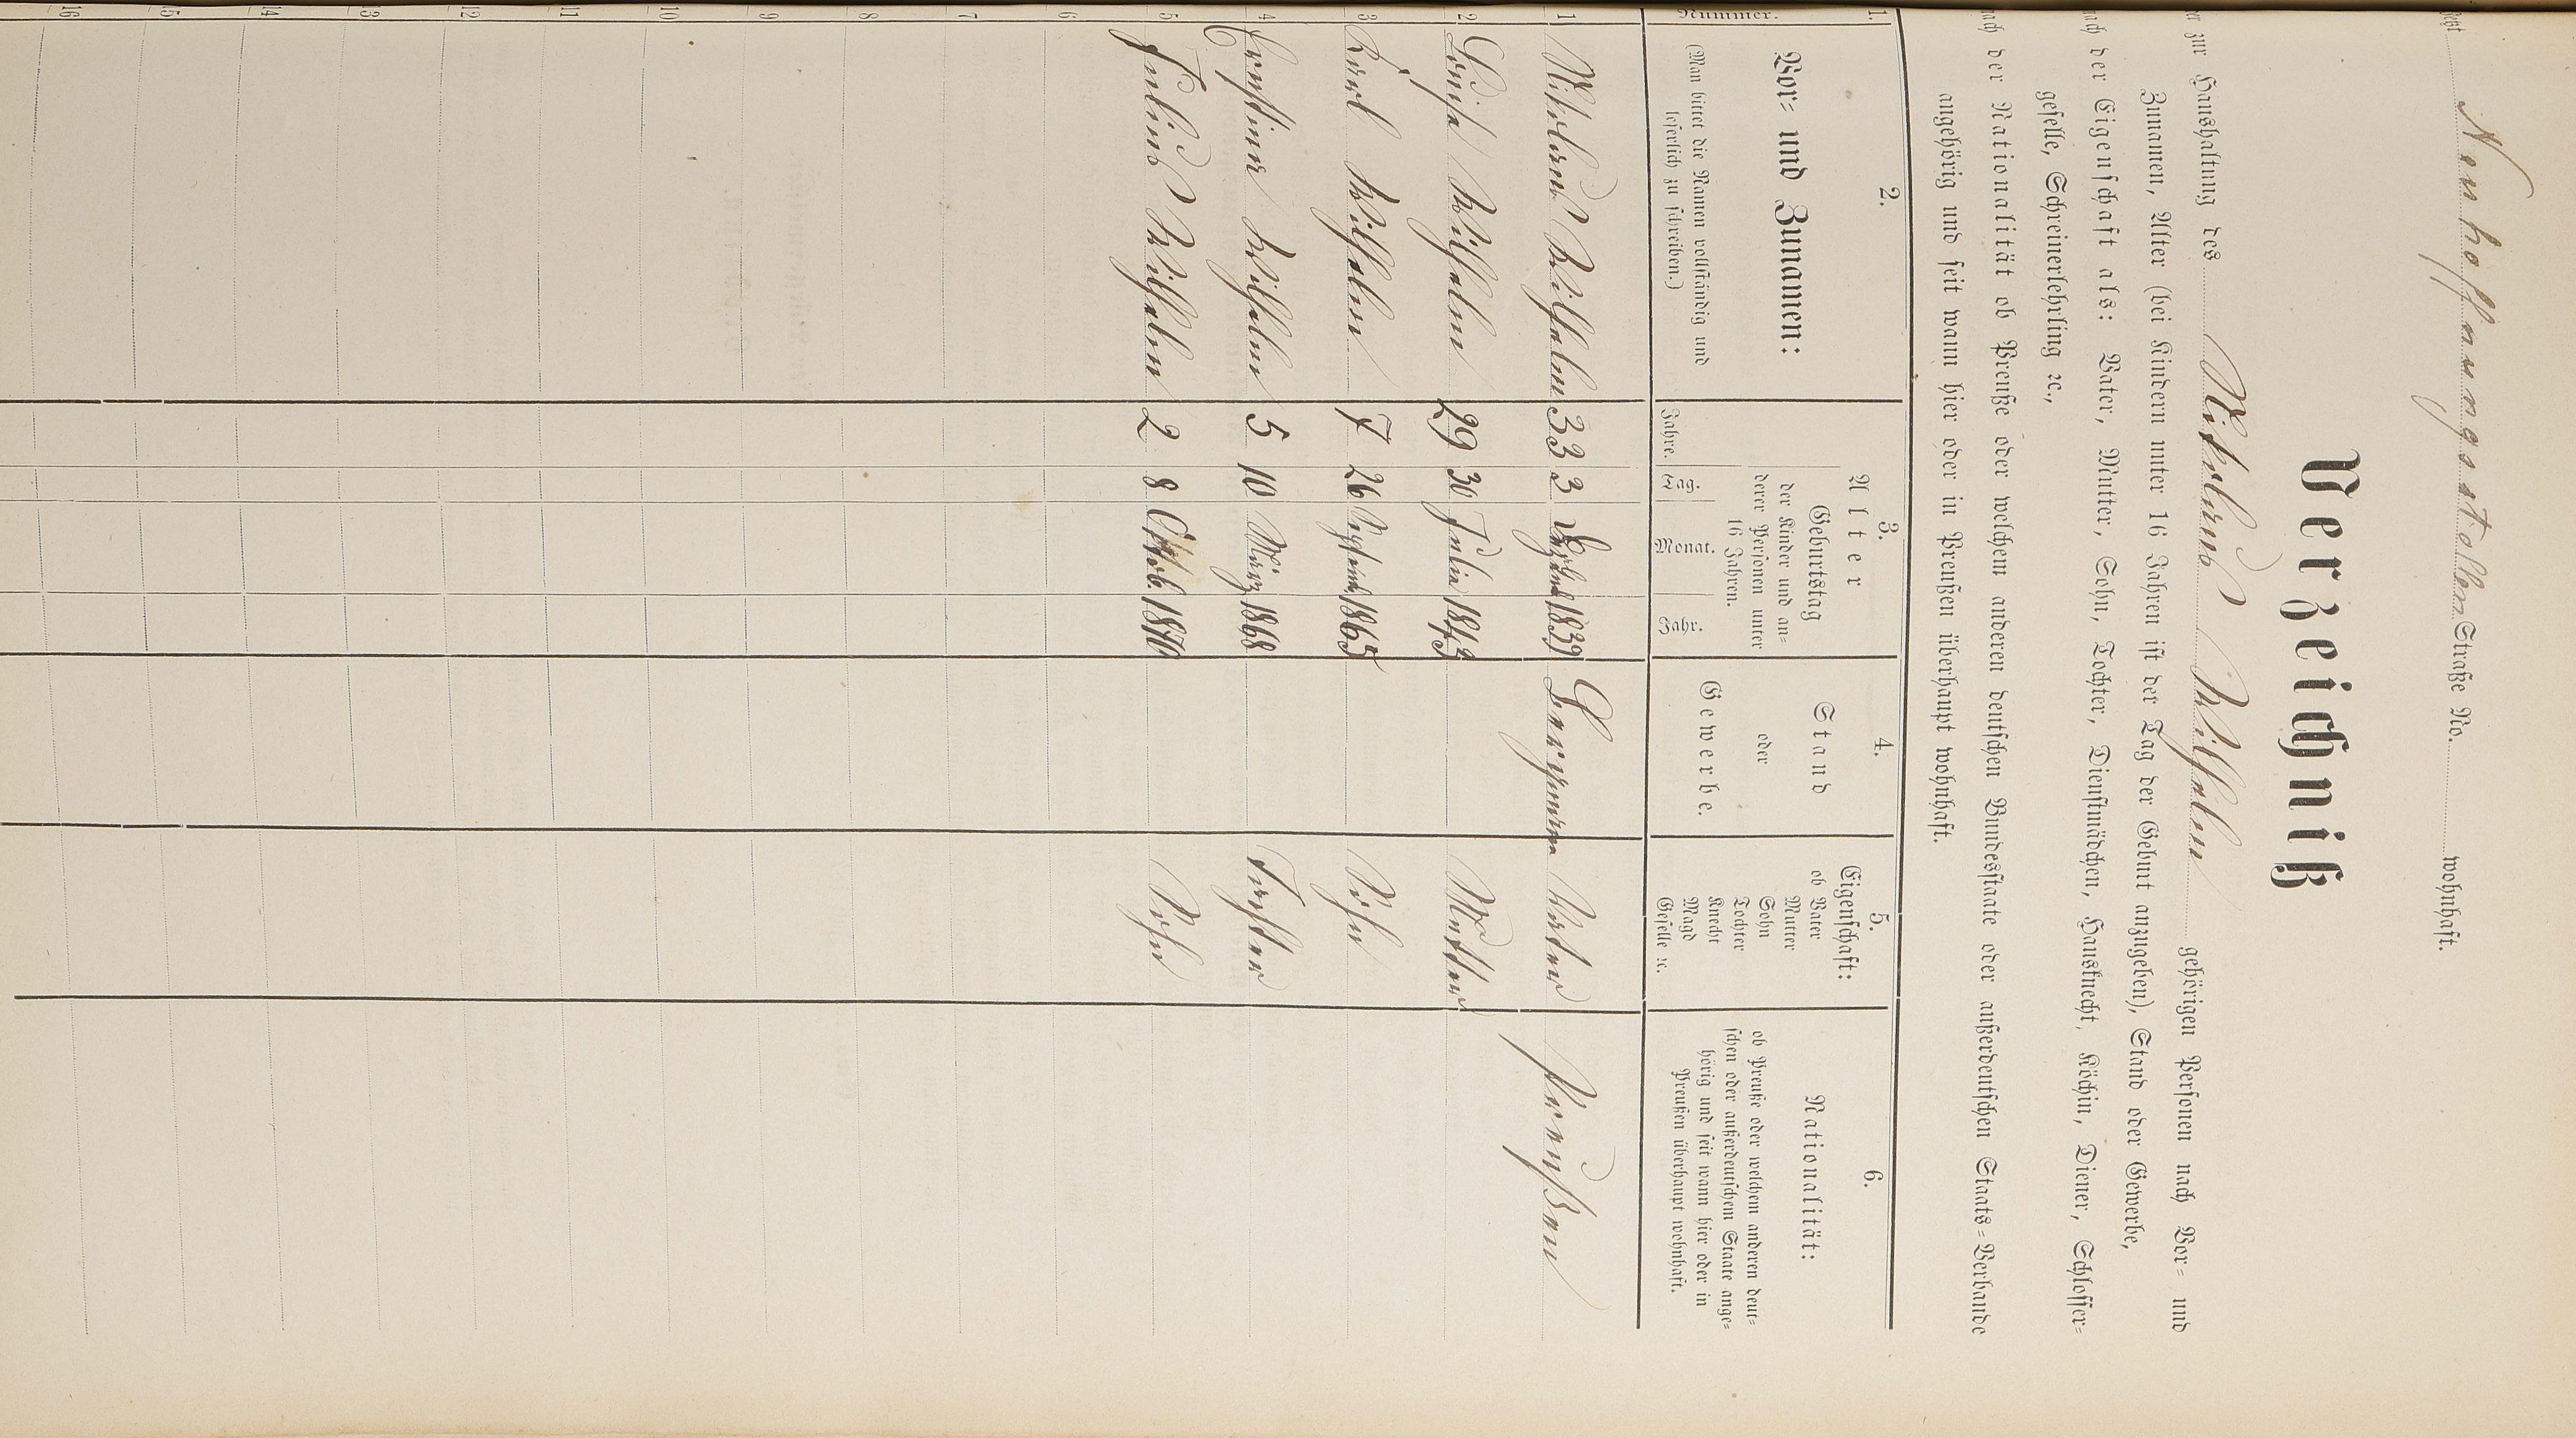 jetzt Neuhoffnungsstollen Straße No. wohnhaft.
Verzeichniß
der zur Haushaltung des Nikolaus Wilhelm gehörigen Personen nach Vor- und
Zunamen, Alter (bei Kindern unter 16 Jahren ist der Tag der Geburt anzugeben), Stand oder Gewerbe,
nach der Eigenschaft als: Vater, Mutter, Sohn, Tochter, Dienstmädchen, Hausknecht, Köchin, Diener, Schlosser-
geselle, Schreinerlehrling ꝛc.,
nach der Nationalität ob Preuße oder welchem anderen deutschen Bundesstaate oder außerdeutschen Staats-Verbande
angehörig und seit wann hier oder in Preußen überhaupt wohnhaft.
1. 2. 3. 4. 5. 6.
Nummer.
Vor- und Zunamen:
(Man bittet die Namen vollständig und
leserlich zu schreiben.)
Alter
Geburtstag
der Kinder und an-
derer Personen unter
16 Jahren.
Jahre. Tag. Monat. Jahr.
Stand
oder
Gewerbe.
Eigenschaft:
ob Vater
Mutter
Sohn
Tochter
Knecht
Magd
Geselle ꝛc.
Nationalität:
ob Preuße oder welchem anderen deut-
schen oder außerdeutschem Staate ange-
hörig und seit wann hier oder in
Preußen überhaupt wohnhaft.
1 Nikolaus Wilhelm 33 3 1839 Bergmann Vater Preußen
2 Louisa Wilhelm 29 30 Julia 1843 Mutter
3 Karl Wilhelm 7 26 1865 Sohn
4 Ernstine Wilhelm 5 10 März 1868 Tochter
5 Julius Wilhelm 2 8 Oktob 1870 Sohn
6
7
8
9
10
11
12
13
14
15
16